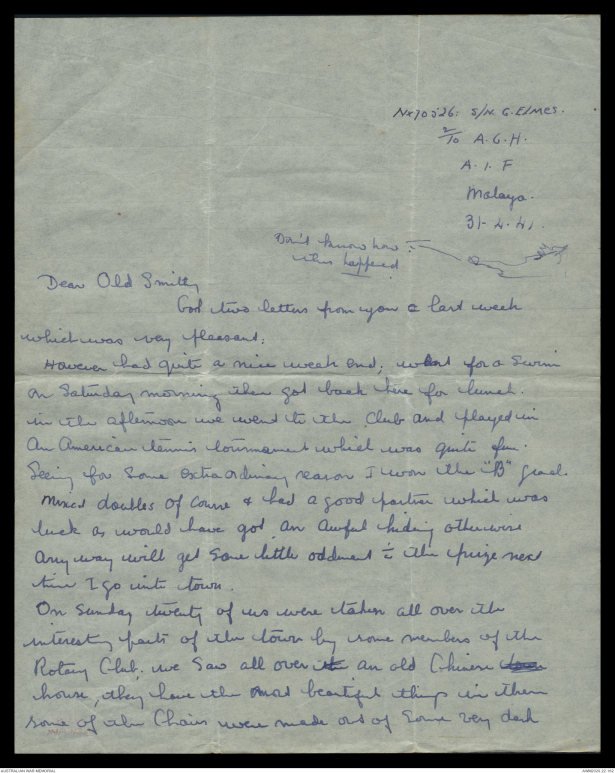 Nx70526. S/N. G. Elmes.
2/10 A.G.H.
A.I.F
Malaya.
31-4-41.
Don't know how
this happened
Dear Old Smithy
Got two letters from you last week
which was very pleasant.
However had quite a nice week end, went for a swim
on Saturday morning then got back here for lunch.
in the afternoon we went to the Club and played in
An American tennis tournament which was quite fun.
Seeing for some extraordinary reason I won the "B" grad.
mixed doubles of course & had a good partner which was
luck as would have got an awful hiding otherwise
anyway will get some little oddment the prize next
time I go into town.
On Sunday twenty of us were taken all over the
interesting parts of the town by some members of the
Rotary Club. we saw all over an old Chinese
house, they have the most beautiful things in them
some of the Chairs were made out of some very dark
AUSTRALIAN WAR MEMORIAL